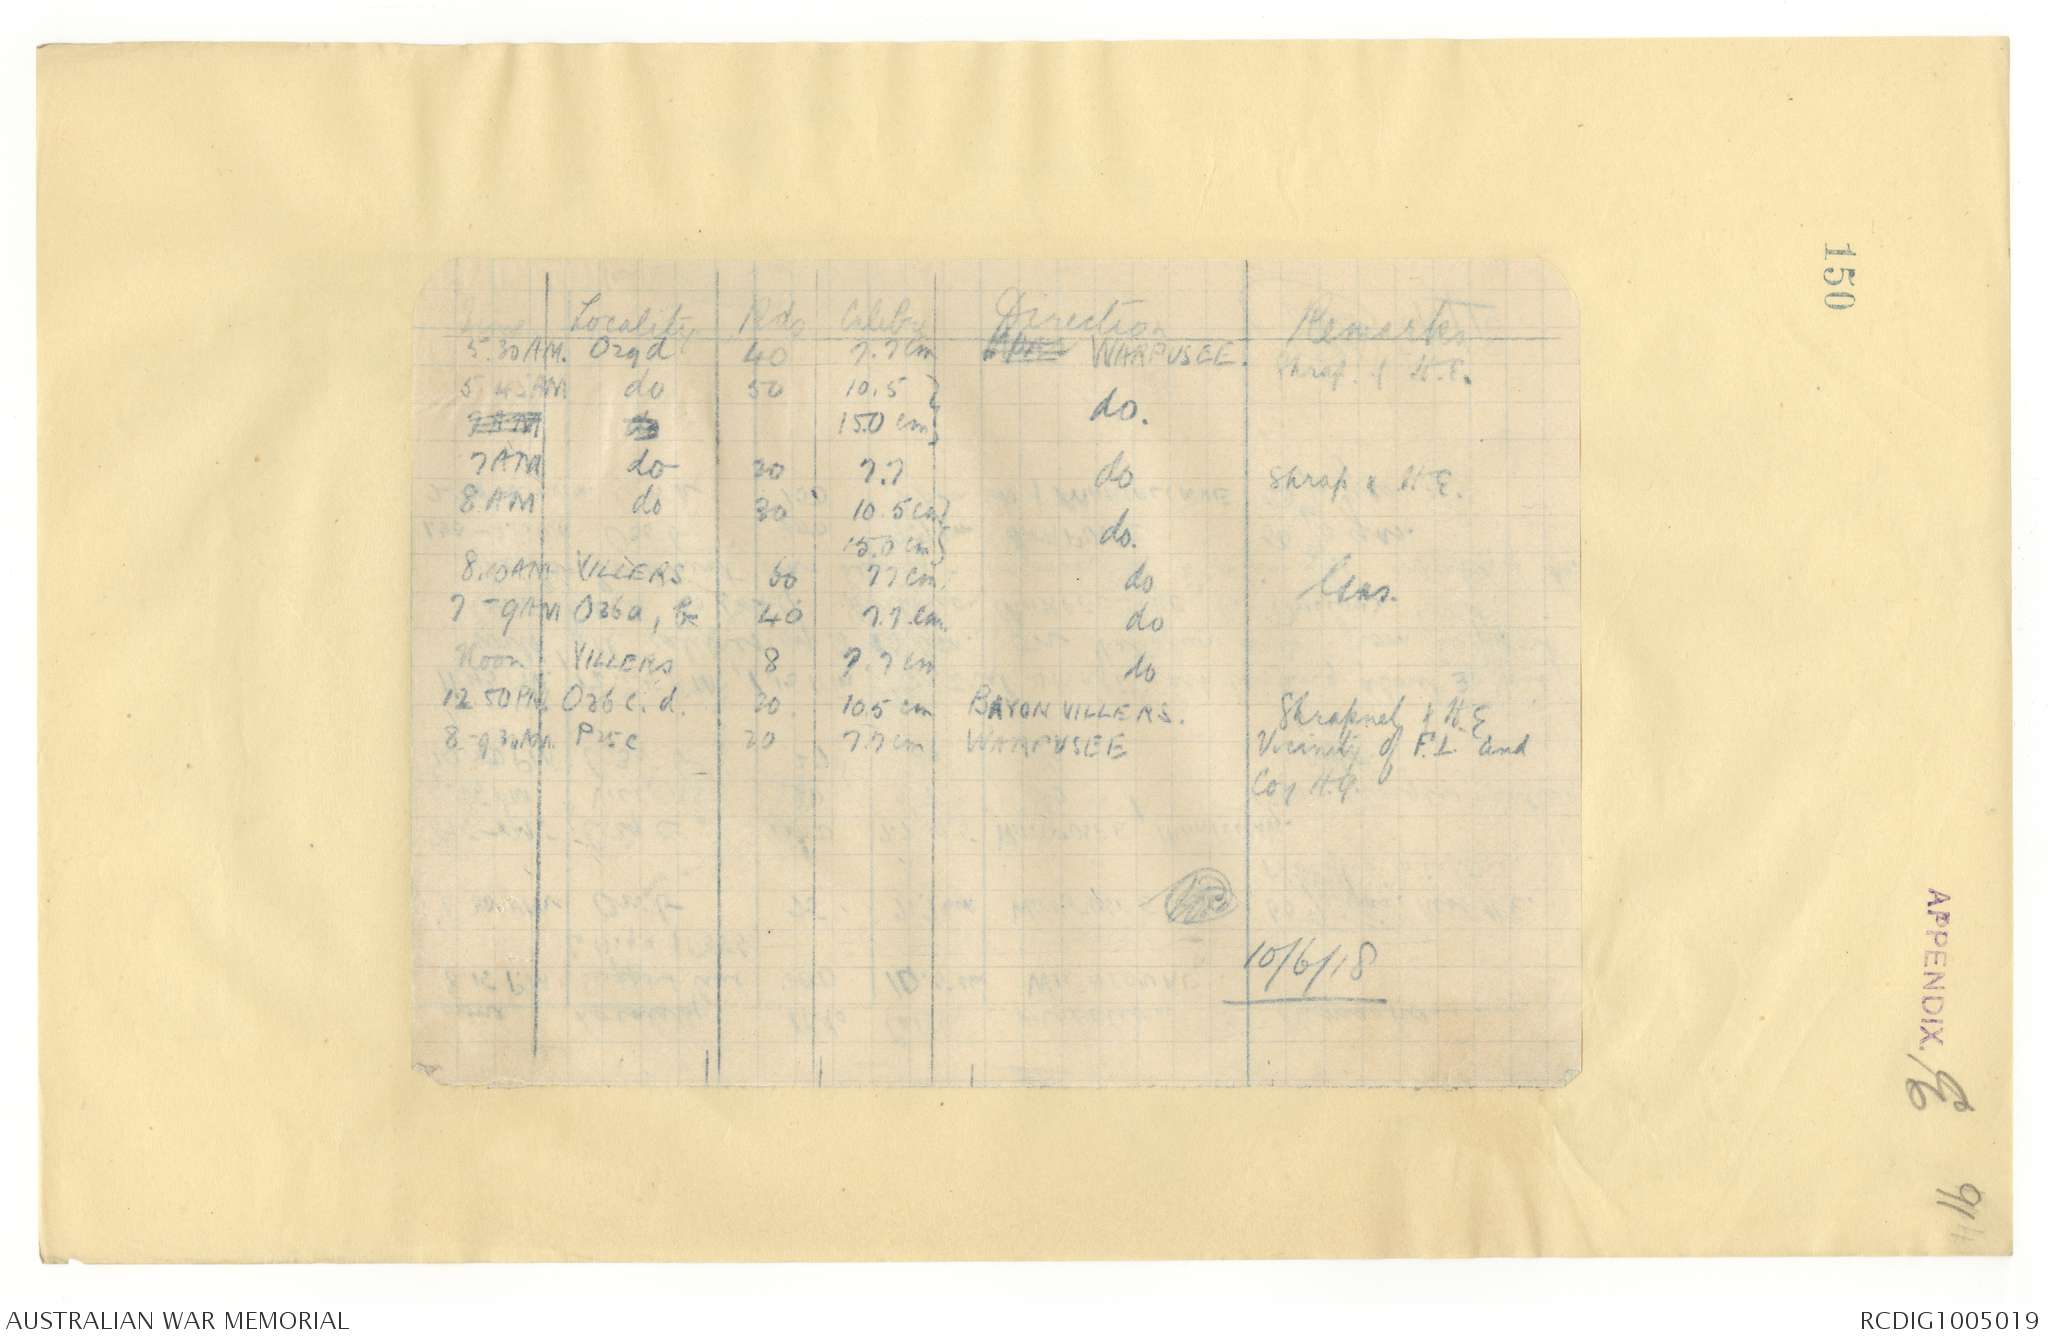 150
Time Locality Rds Calibre Direction Remarks
5.30 AM. O29d 40 7.7 cm WARFUSEE. Shrap. & H.E.
5.45 AM do 50 10.5 } do.
7 AM do 15.0 cm }
7 AM do 20 7.7 do Shrap & H.E.
8 AM do 30 10.5 cm } do.
15.0 cm }
8.10 AM VILLERS 60 77 cm. do Gas.
7 - 9 AM O26a, 40 7.7 cm. do
Noon VILLERS 8 7.7 cm do
12.50 PM. O26 c. d. 20 10.5 cm BAYONVILLERS. Shrapnel & H.E
8 - 9.30 AM. P25c 20 7.7 cm WARFUSEE Vicinity of F.L. and
Coy H.Q.
10/6/18
APPENDIX.
AUSTRALIAN WAR MEMORIAL
RCDIG1005019